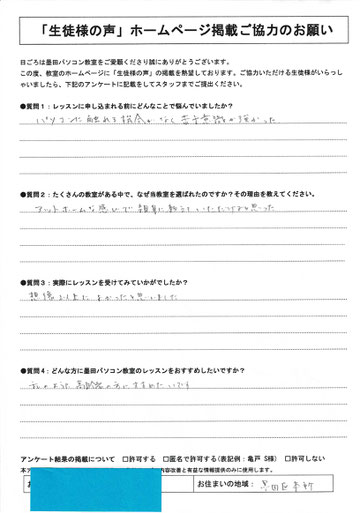 「生徒様の声」ホームページ掲載ご協力のお願い
日ごろは墨田パソコン教室をご愛顧くださり誠にありがとうございます。
この度、教室のホームページに「生徒様の声」の掲載を熱望しております。ご協力いただける生徒様がいらっし
ゃいましたら、下記のアンケートに記載をしてスタッフまでご提出ください。
●質問１：レッスンに申し込まれる前にどんなことで悩んでいましたか？
パソコンに触れる機会がなく苦手意識が強かった
●質問２：たくさんの教室がある中で、なぜ当教室を選ばれたのですか？その理由を教えてください。
アットホームな感じで親身に教えていただけると思った
●質問３：実際にレッスンを受けてみていかがでしたか？
想像以上によかったと思いました
●質問４：どんな方に墨田パソコン教室のレッスンをおすすめしたいですか？
私のような の方にすすめたいです
アンケート結果の掲載について　□許可する　□匿名で許可する（表記例：亀戸 S様）　□許可しない
本ア 内容改善と有益な情報提供のみに使用します。
お住まいの地域： 墨田区